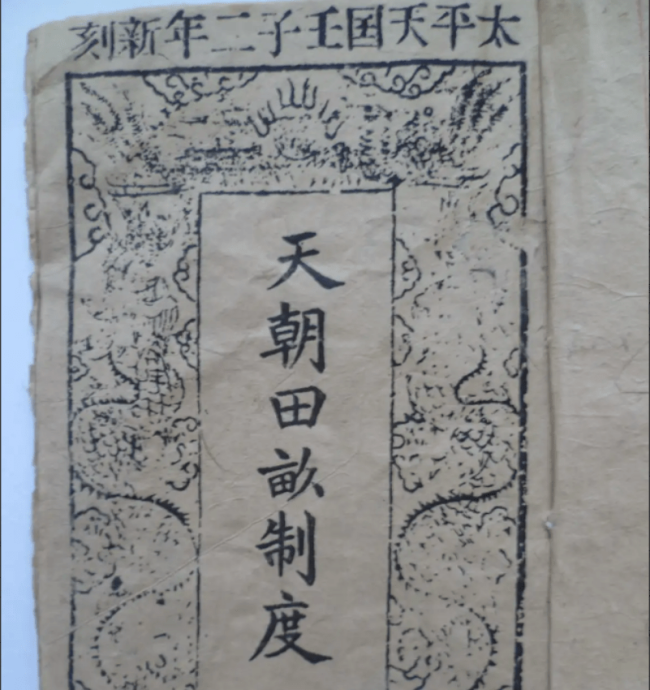 太平天囯壬子二年新刻
天朝田畝制度